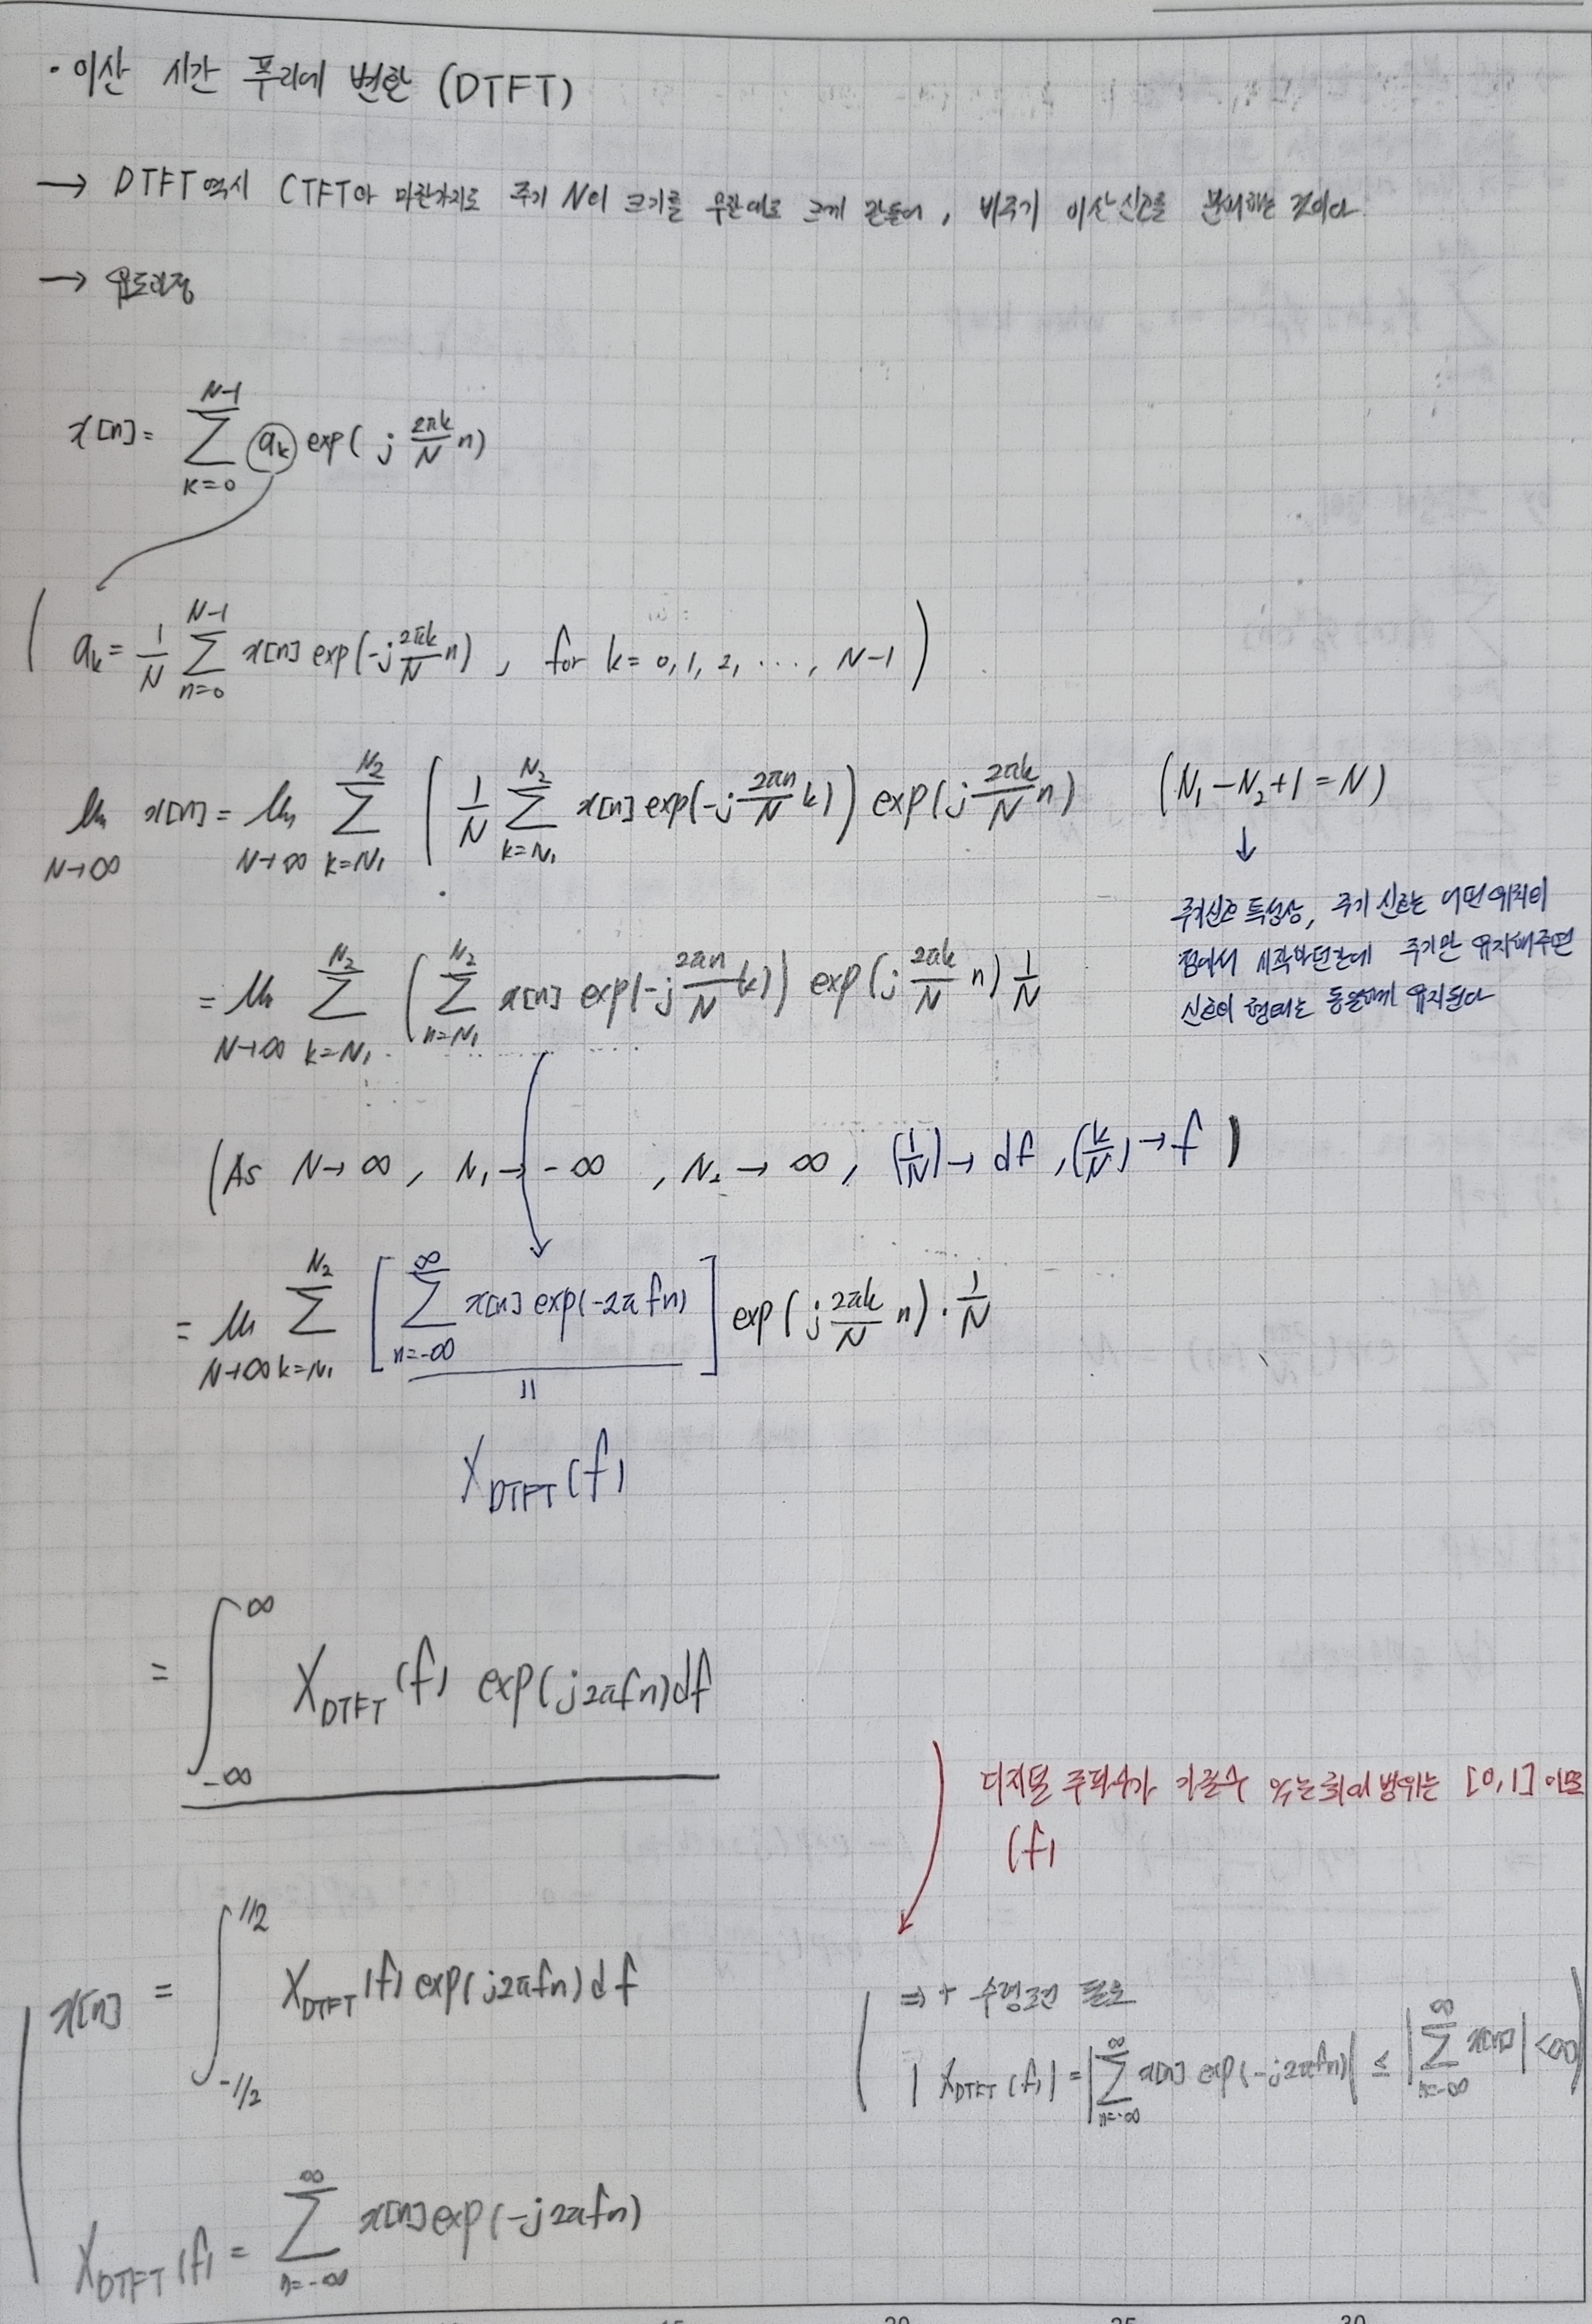 · 이산 시간 푸리에 변환 (DTFT)
→ DTFT 역시 CTFT와 마찬가지로 주기 N의 크기를 무한대로 크게 만들어, 비주기 이산신호를 분해하는 것이다
→ 유도과정
x[n] = \sum_{k=0}^{N-1} a_k exp(j \frac{2πk}{N} n)
( a_k = \frac{1}{N} \sum_{n=0}^{N-1} x[n] exp(-j \frac{2πk}{N} n) , for k = 0, 1, 2, ..., N-1 )
\lim_{N→∞} x[n] = \lim_{N→∞} \sum_{k=N_1}^{N_2} ( \frac{1}{N} \sum_{k=N_1}^{N_2} x[n] exp(-j \frac{2πn}{N} k) ) exp(j \frac{2πk}{N} n) (N_1 - N_2 + 1 = N)
↓
주기신호 특성상, 주기 신호는 어떤 위치의
점에서 시작하던간에 주기만 유지해주면
신호의 형태는 동일하게 유지된다
= \lim_{N→∞} \sum_{k=N_1}^{N_2} ( \sum_{n=N_1}^{N_2} x[n] exp(-j \frac{2πn}{N} k) ) exp(j \frac{2πk}{N} n) \frac{1}{N}
(As N → ∞ , N_1 → -∞ , N_2 → ∞ , (\frac{1}{N}) → df , (\frac{k}{N}) → f )
= \lim_{N→∞} \sum_{k=N_1}^{N_2} [ \sum_{n=-∞}^{∞} x[n] exp(-2π fn) ] exp(j \frac{2πk}{N} n) · \frac{1}{N}
=
X_{DTFT}(f)
= \int_{-∞}^{∞} X_{DTFT}(f) exp(j2πfn) df
디지털 주파수가 가질수 있는 최대 범위는 [0,1] 이므로
(f)
x[n] = \int_{-1/2}^{1/2} X_{DTFT}(f) exp(j2πfn) df
⇒ + 수렴조건 필요
| X_{DTFT}(f) | = | \sum_{n=-∞}^{∞} x[n] exp(-j2πfn) | ≤ | \sum_{n=-∞}^{∞} x[n] | < ∞
X_{DTFT}(f) = \sum_{n=-∞}^{∞} x[n] exp(-j2πfn)